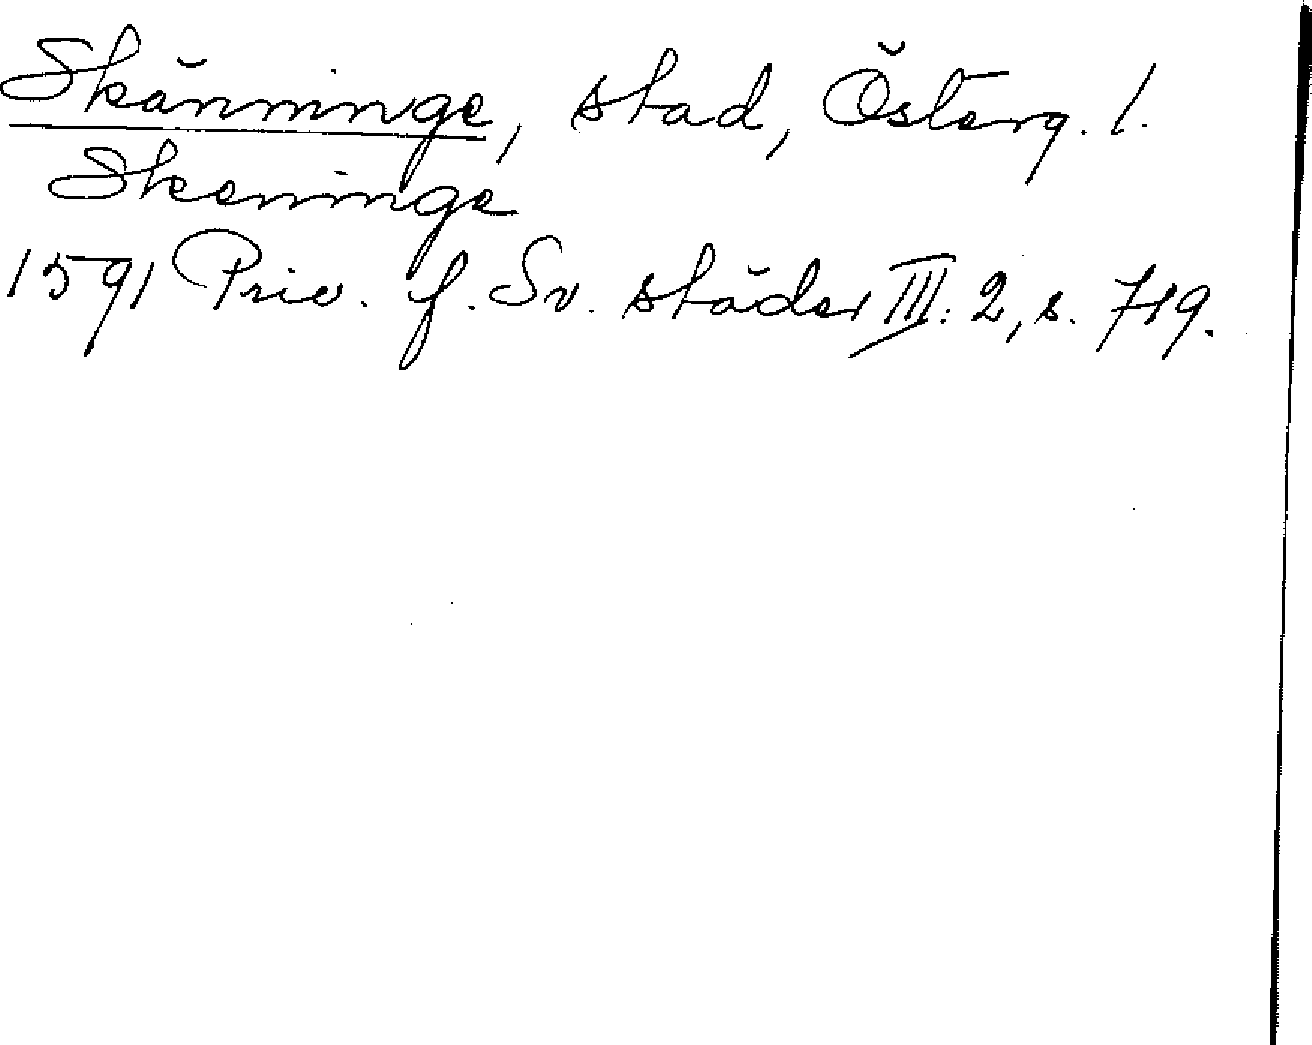 Skänninge, stad, Österg. l.
Skeninge
1591 Priv. f. Sv. städer III: 2, s. 719.